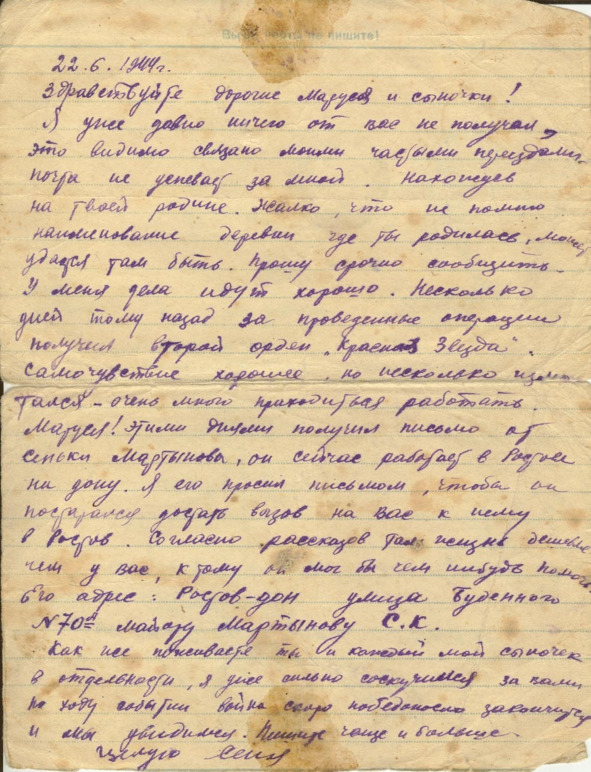 Выше черты не пишите!
22.6.1944г.
Здравствуйте дорогие Маруся и сыночки!
Я уже давно ничего от вас не получал,
это видимо связано моими частыми переездами.
почта не успевает за мной. Нахожусь
на твоей родине. Жалко, что не помню
наименование деревни где ты родилась, может
удастся там быть. Прошу срочно сообщить.
У меня дела идут хорошо. Несколько
дней тому назад за проведенные операции
получил второй орден „Красная Звезда".
Самочувствие хорошее, но несколько измо-
тался - очень много приходиться работать.
Маруся! Этими днями получил письмо от
Сеньки Мартынова, он сейчас работает в Ростове
на дону. Я его просил письмом, чтобы он
постарался достать вызов на вас к нему
в Ростов. Согласно рассказов там жизнь дешевле
чем у вас, к тому он мог бы чем нибудь помочь.
Его адрес: Ростов-дон улица Буденного
№70а майору Мартынову С.К.
Как же поживаете ты и каждый мой сыночек
в отдельности, я уже сильно соскучился за вами
по ходу событий война скоро победоносно закончится
и мы увидимся. Пишите чаще и больше.
Целую Сеня